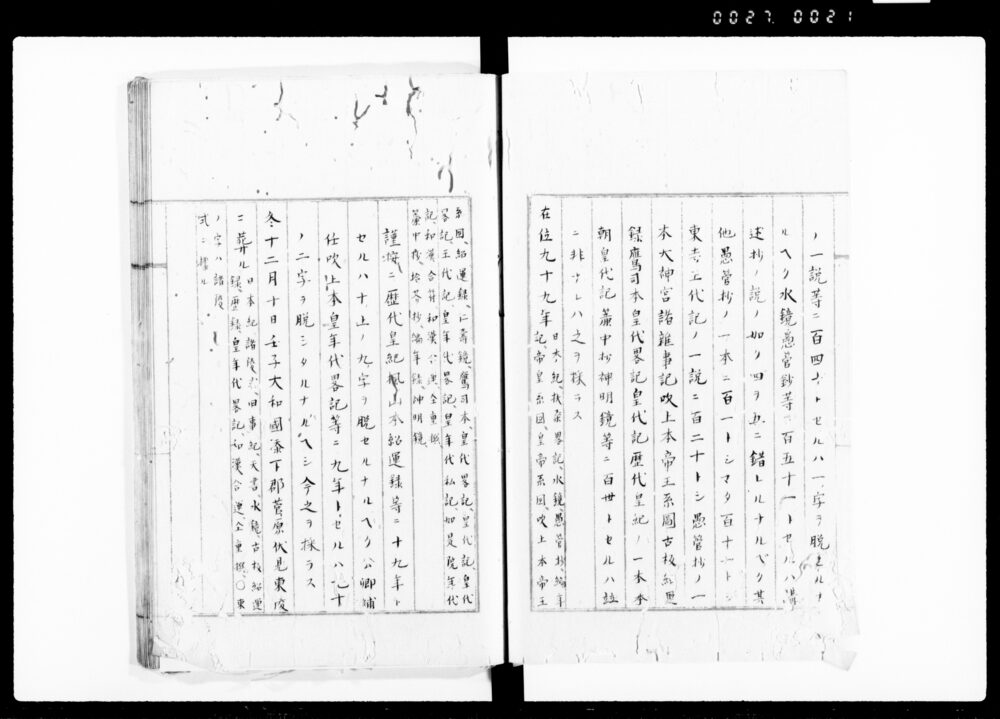 0027 0021
ノ一説等ニ百四十トセルハ一字ヲ脱セルナ
ルヘク水鏡愚管鈔等ニ百五十一トセルハ
述抄ノ説ノ如ク四ヲ五ニ錯レルナルベク其
他愚管抄ノ一本ニ百一トシマタ百十一トシ
東寺王代記ノ一説ニ百二十トシ愚管抄ノ一
本大神宮諸雜事記吹上本帝王系圖古板紹運
録鷹司本皇代畧記皇代記歴代皇紀ノ一本本
朝皇代記簾中抄神明鏡等ニ百卅トセルハ竝
ニ非ナレハ之ヲ採ラス
在位九十九年 日本紀、扶桑畧記、水鏡、愚管抄、編年
記、帝皇系圖、皇帝系圖、吹上本帝王
系圖、紹運録、仁壽鏡、鷹司本、皇代畧記、皇代記、皇代
畧記、王代記、皇年代畧記、皇年代私記、如是院年代
記、和漢合符、和漢合運、仝重撰、
簾中抄、拾芥抄、編年録、神明鏡、
謹按ニ歴代皇紀楓山本紹運録等ニ十九年ト
セルハ十上ノ九字ヲ脱セルナルヘク公卿補
任吹上本皇年代畧記等ニ九年トセルハ九十
ノ二字ヲ脱シタルナルヘシ今之ヲ採ラス
冬十二月十日壬子大和國添下郡菅原伏見東陵
ニ葬ル 日本紀、諸陵式、旧事紀、天書、水鏡、古板紹運
録、歴録、皇年代畧記、和漢合運、仝重撰、〇東
ノ字ハ諸陵
式ニ據ル